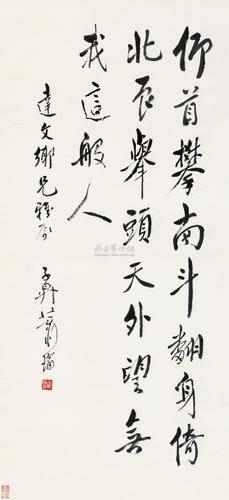 仰首攀南斗翻身倚
北辰舉頭天外望無
我這般人
達文鄉兄雅屬
子昇蕭瑜